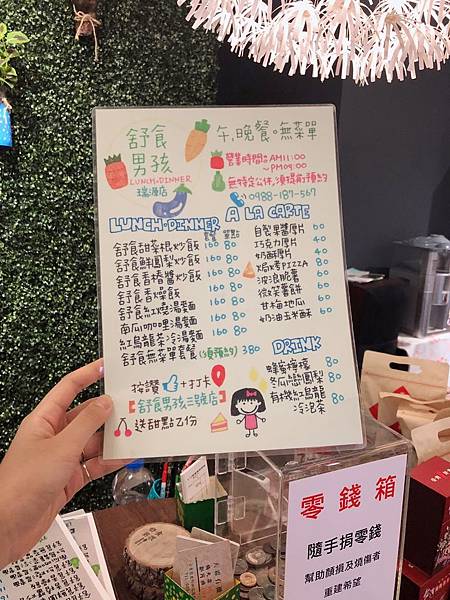 舒食
男孩
LUNCH·DINNER
瑞源店
午,晚餐。無菜單
營業時間:AM11:00
~PM09:00
無特定公休,須提前預約
0988-187-567
LUNCH·DINNER
套餐 單點
舒食甜菜根炒飯 160 80
舒食鮮鳳梨炒飯 160 80
舒食香椿醬炒飯 160 80
舒食香燥飯 160 80
舒食紅燒湯麵 160 80
南瓜咖哩湯麵 160 80
紅烏龍茶冷湯麵 160 80
舒食無菜單套餐(須預約) 380
A LA CARTE
自製果醬厚片 60
巧克力厚片 40
奶酥厚片 40
火焗烤PIZZA 80
波浪脆薯 60
微笑薯餅 60
甘梅地瓜 60
奶油玉米酥 60
DRINK
蜂蜜檸檬 80
冬瓜戀鳳梨 80
有機紅烏龍 80
冷泡茶
按讚 +打卡
【舒食男孩三號店】
送甜點乙份
零錢箱
隨手捐零錢
幫助顏損及燒傷者
重建希望